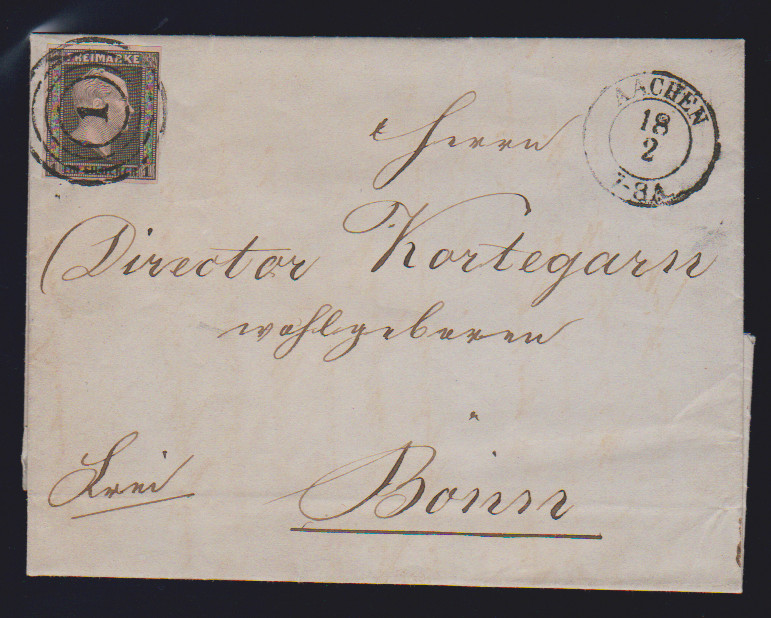 FREIMARKE
1
1 EIN SILBERGR. 1
AACHEN
18
2
7-8A
Herrn
Director Kortegarn
wohlgeboren
Frei
Bonn